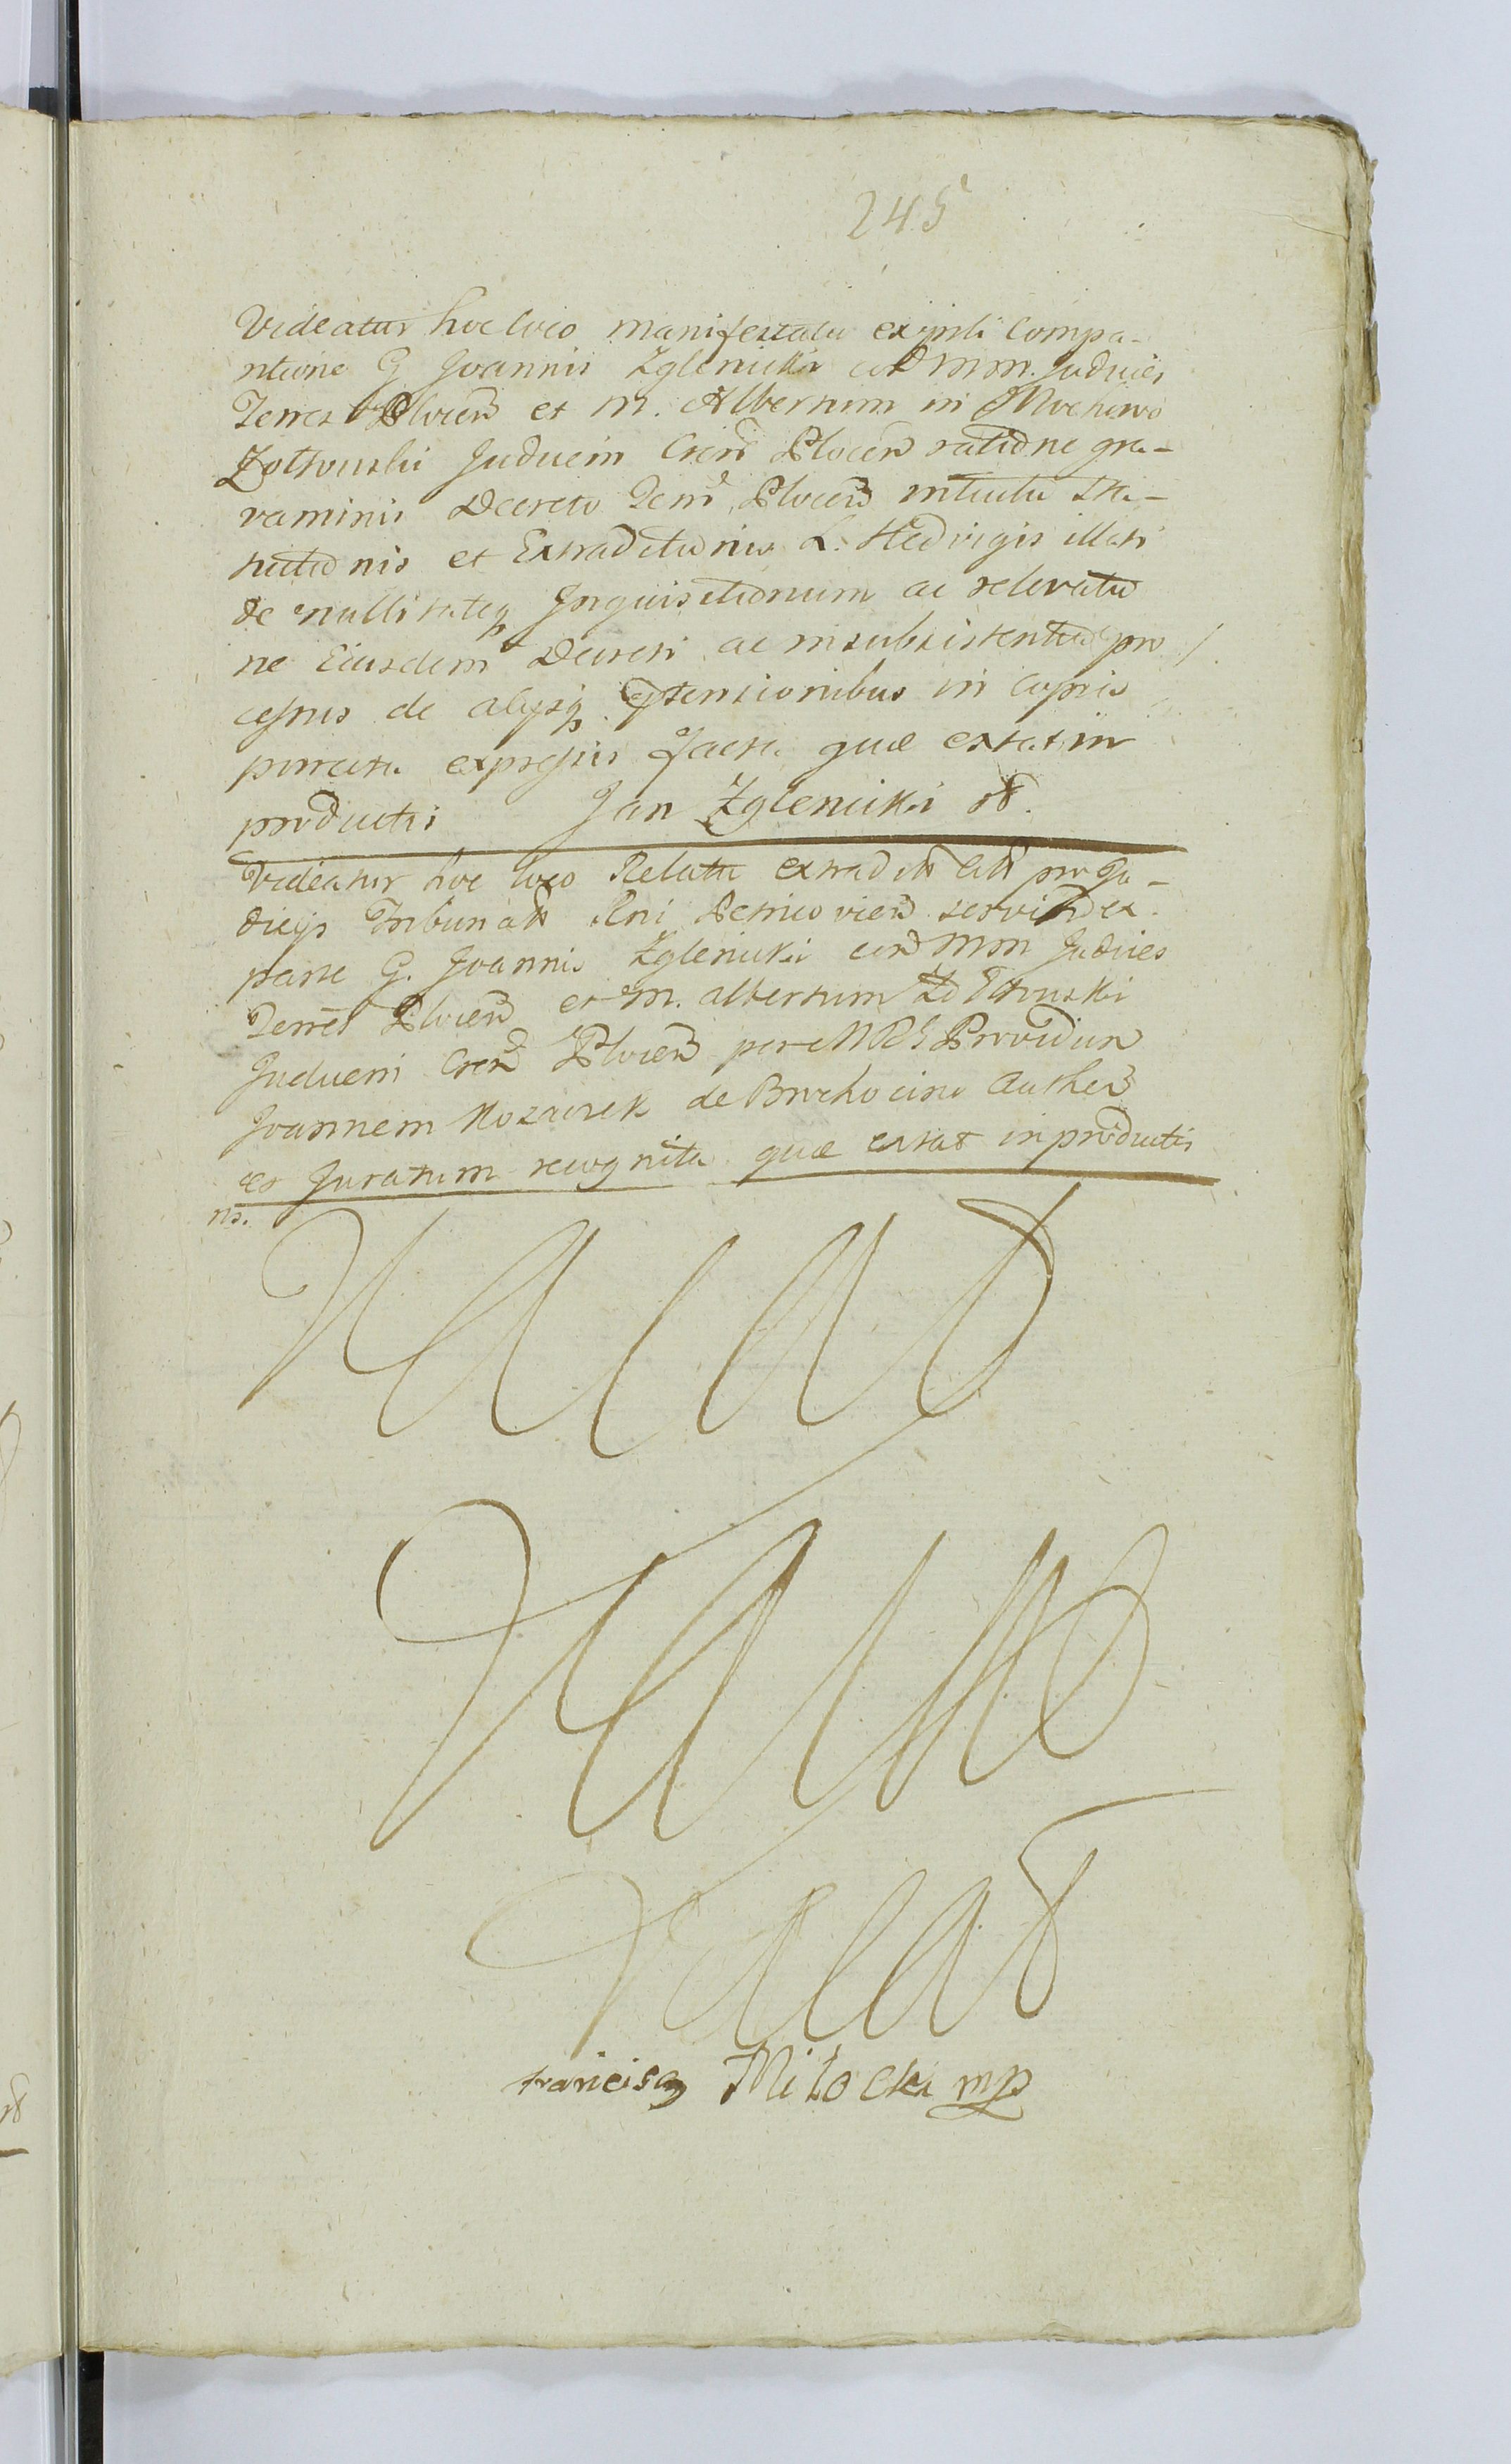 245
Videatur hoc loco manifestatu ex psli Compa-
ntione G Joannis Zglenicki cord mm. Judices
Terres Plocen et M. Albertum in Mochowo
Zołtowski Judicem Cren Plocen ratidne gra-
vaminis Decreto Terris Plocen intuitu Sta-
tutidnis et Extraditidnis L. Hedvigis illati
de nullitateq Inquisitidnum ac relevatid
ne Eiusdem Decreti ac insubsistentid pro
cessus de alijsq ptensionibus in copia
porrecta expressis facta quæ extat in
productis Jan Zglenicki
Videatur hoc loco Relatu extradit Citt pro Ju-
dicijs Tribunals Rni Petricovien servien ex
parte G. Joannis Zglenicki cord mm Judices
Terres Plocen et M. Albertum Zołtowski
Judicem Cren Plocen per Providum
Joannem Kozaczek de Brochocino Authen
et Juratum recognita quæ extat in productis
ns.
Vacat
Vacat
Francisq Miłocki mp